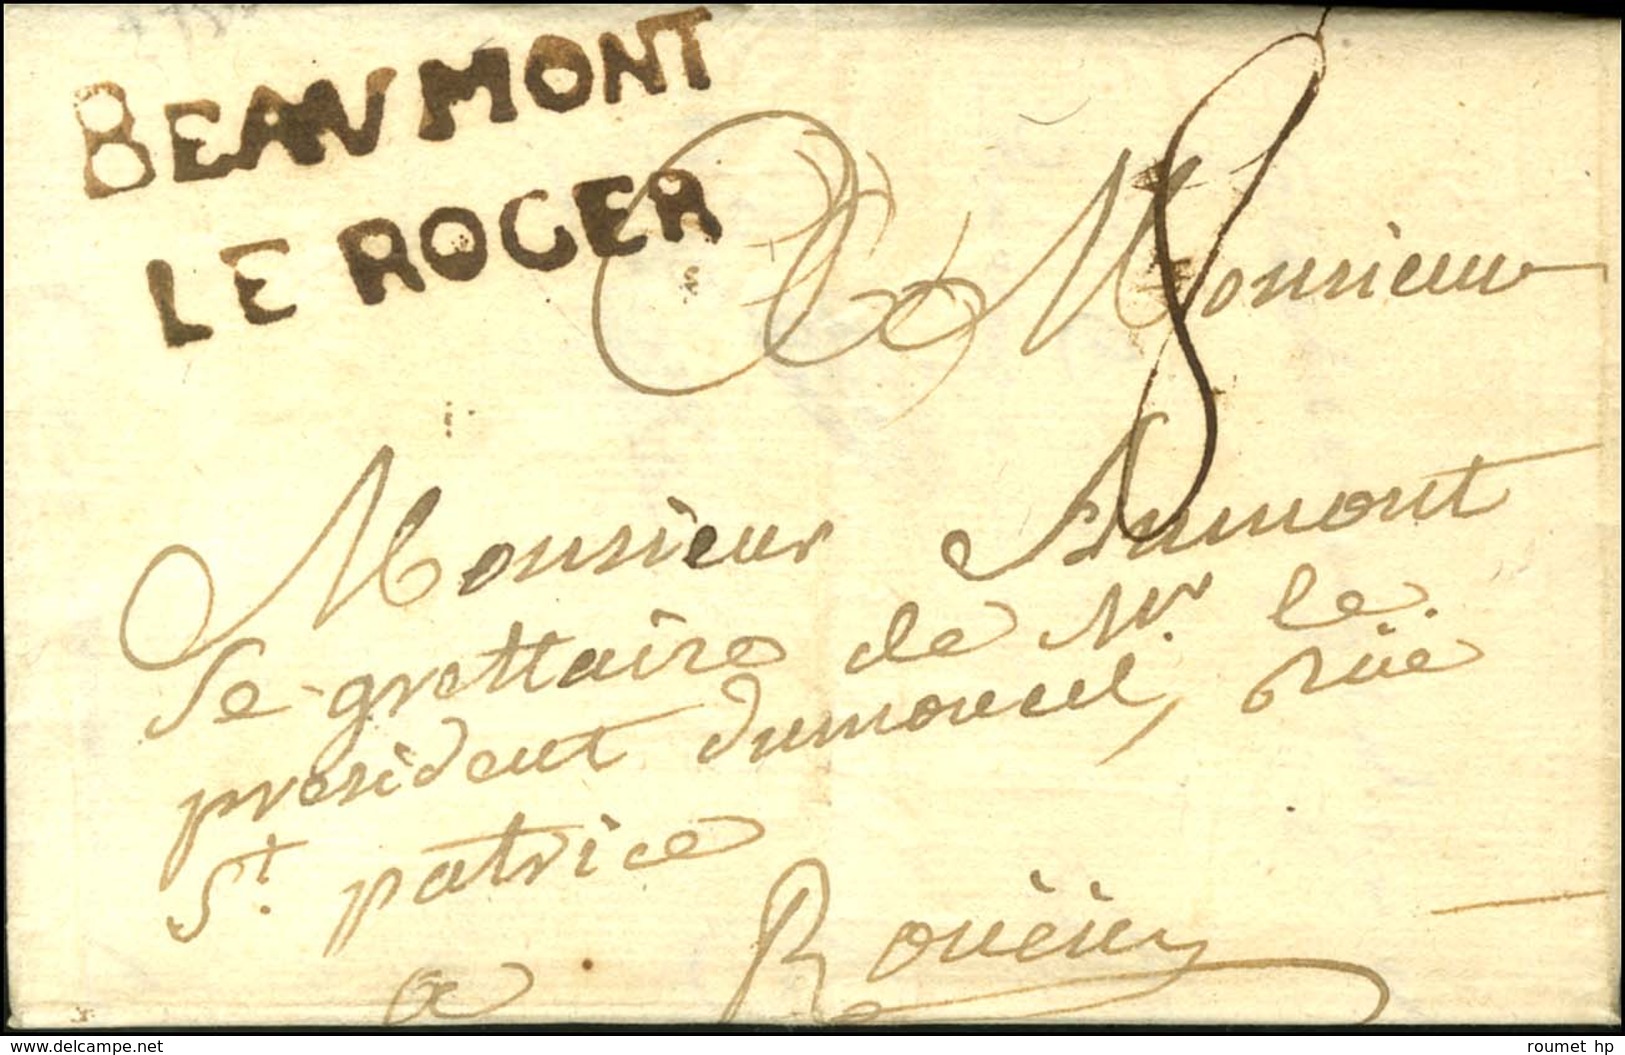 BEAUMONT
LE ROGER
A Monsieur
8
Monsieur Aumont
Segrettaire de Mr. le
president dumoucel, rüe
St. patrice
a Roüen
www.delcampe.net
roumet hp